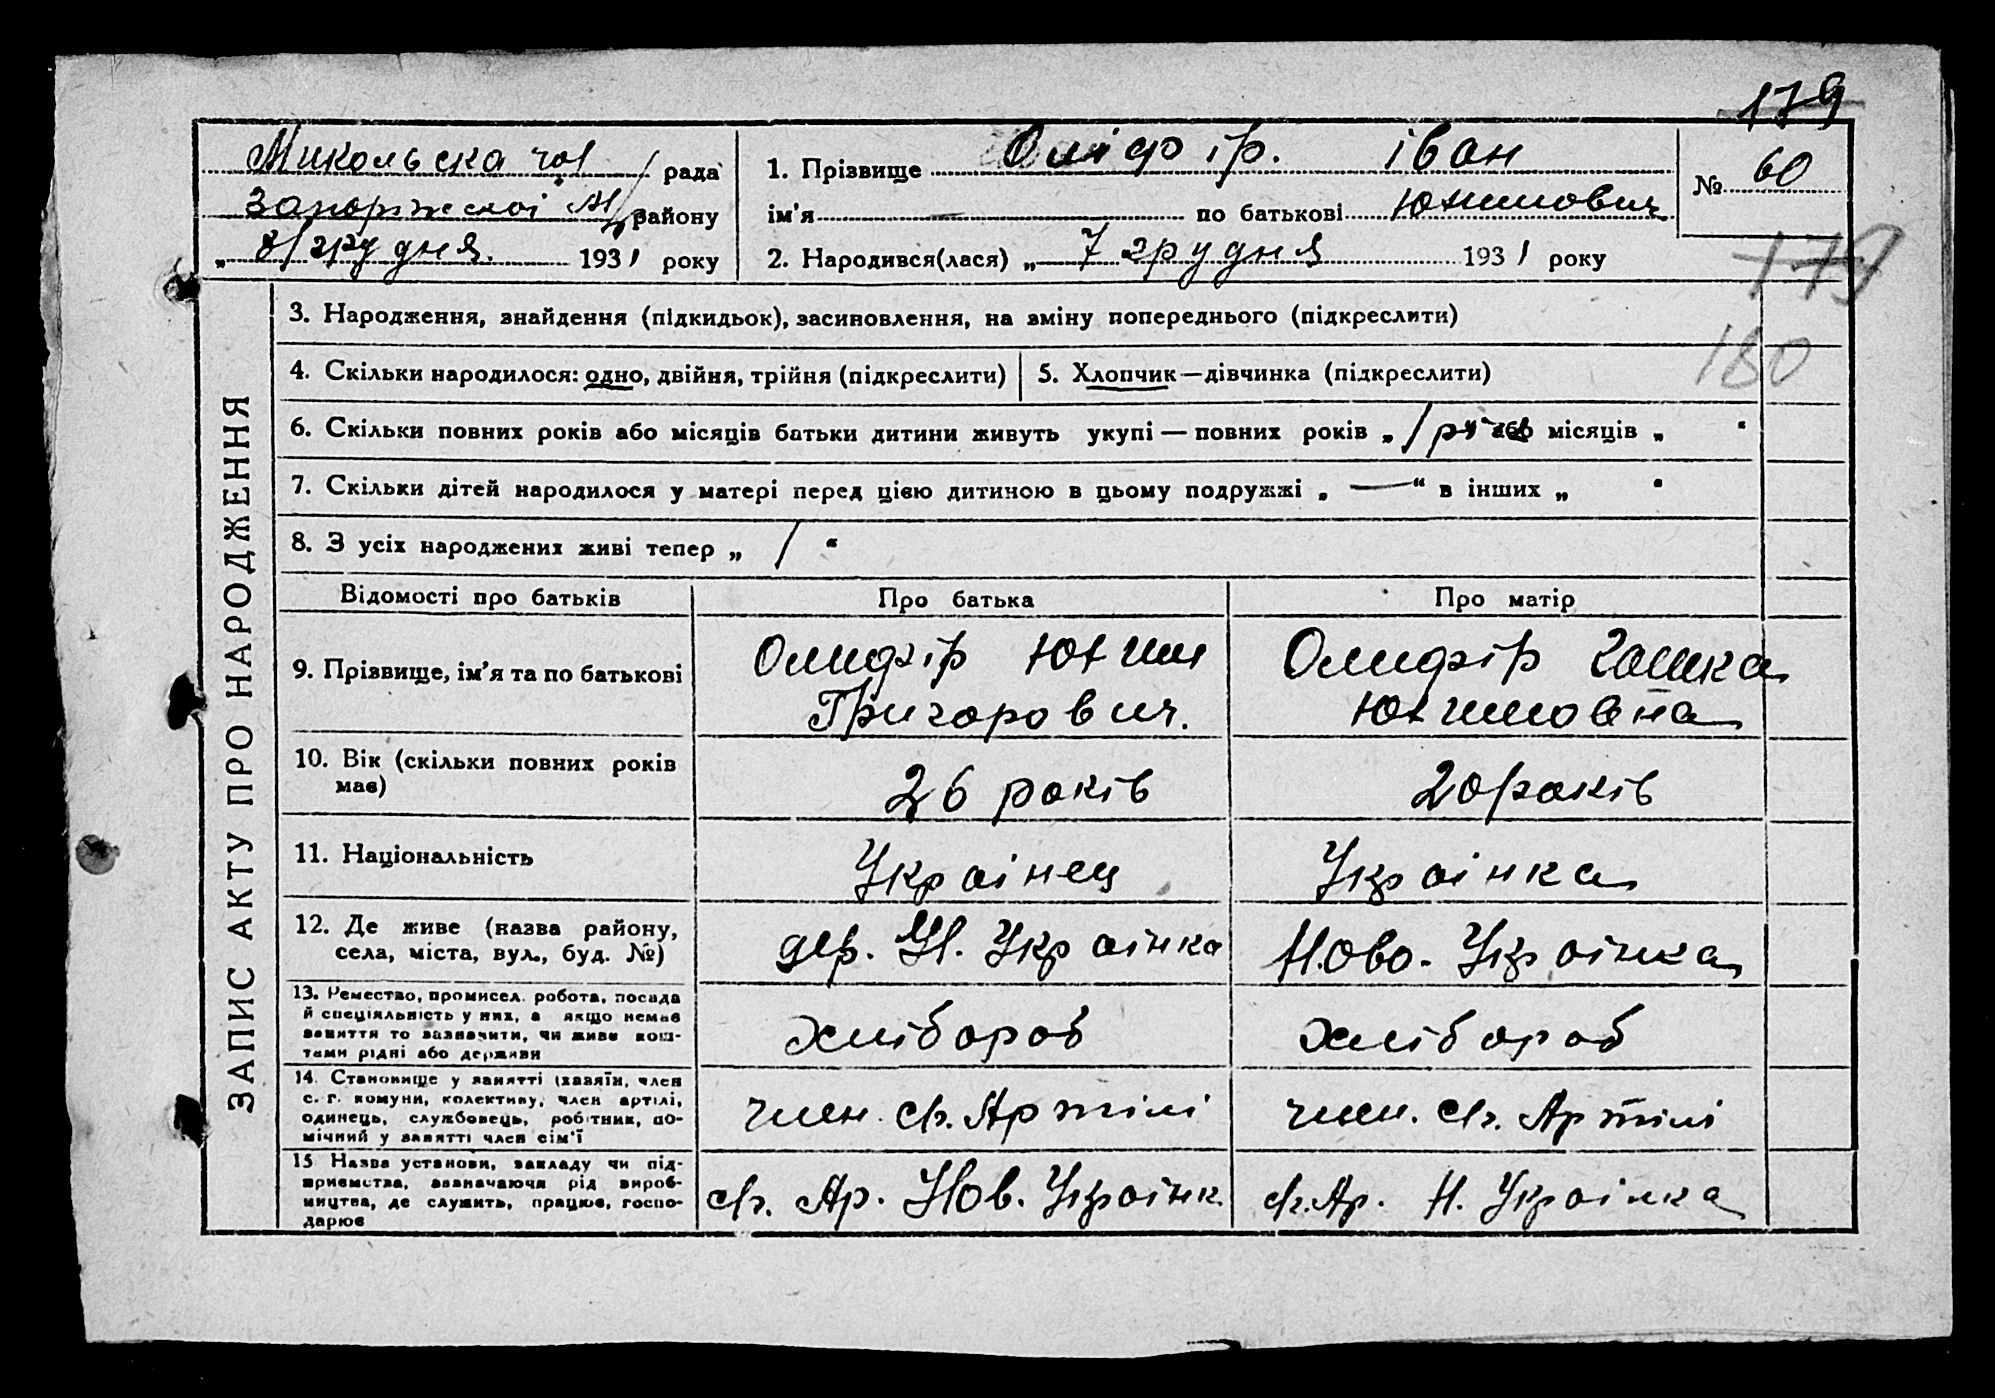 179
Микольска рада
Запоріжскої М/ району
„ 8/ грудня. 1931 року
1. Прізвище Оліфір. Іван
ім'я — по батькові Юхимович
2. Народився(лася) „ 7 грудня 1931 року
№ 60
179
180
ЗАПИС АКТУ ПРО НАРОДЖЕННЯ
3. Народження, знайдення (підкидьок), засиновлення, на зміну попереднього (підкреслити)
4. Скільки народилося: одно, двійня, трійня (підкреслити)
5. Хлопчик—дівчинка (підкреслити)
6. Скільки повних років або місяців батьки дитини живуть укупі — повних років „ 1 або місяців „ “
7. Скільки дітей народилося у матері перед цією дитиною в цьому подружжі „ — “ в інших „ “
8. З усіх народжених живі тепер „ 1 “
Відомості про батьків Про батька Про матір
9. Прізвище, ім'я та по батькові
Олифір Юхим
Григорович.
Олифір Гашка
Юхимовна
10. Вік (скільки повних років
має)
26 років
20 років
11. Національність
Українец
Українка
12. Де живе (назва району,
села, міста, вул., буд. №)
дер. Н. Українка
Ново. Українка
13. Ремество, промисел. робота, посада
й спеціяльність у них, а якщо немає
заняття то зазначити, чи живе кош-
тами рідні або держави
хлібороб
хлібороб
14. Становище у занятті (хазяїн, член
с. г. комуни, колективу, член артілі,
одинець, службовець, робітник, по-
мічний у занятті член сім'ї
член. сг. Артілі
член. сг. Артілі
15 Назва установи, закладу чи під-
приємства, зазначаючи рід вироб-
ництва, де служить, працює, госпо-
дарює
сг. Ар. Нов. Українк.
сг. Ар. Н. Українка